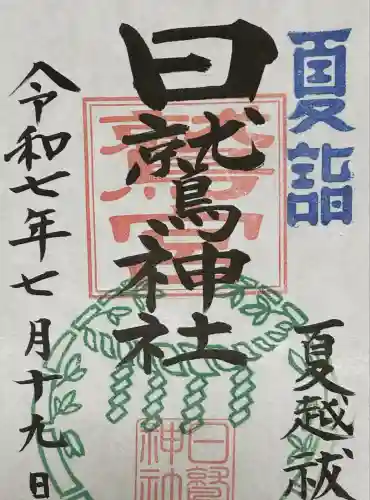 夏詣
夏越祓
日鷲神社
令和七年七月十九日